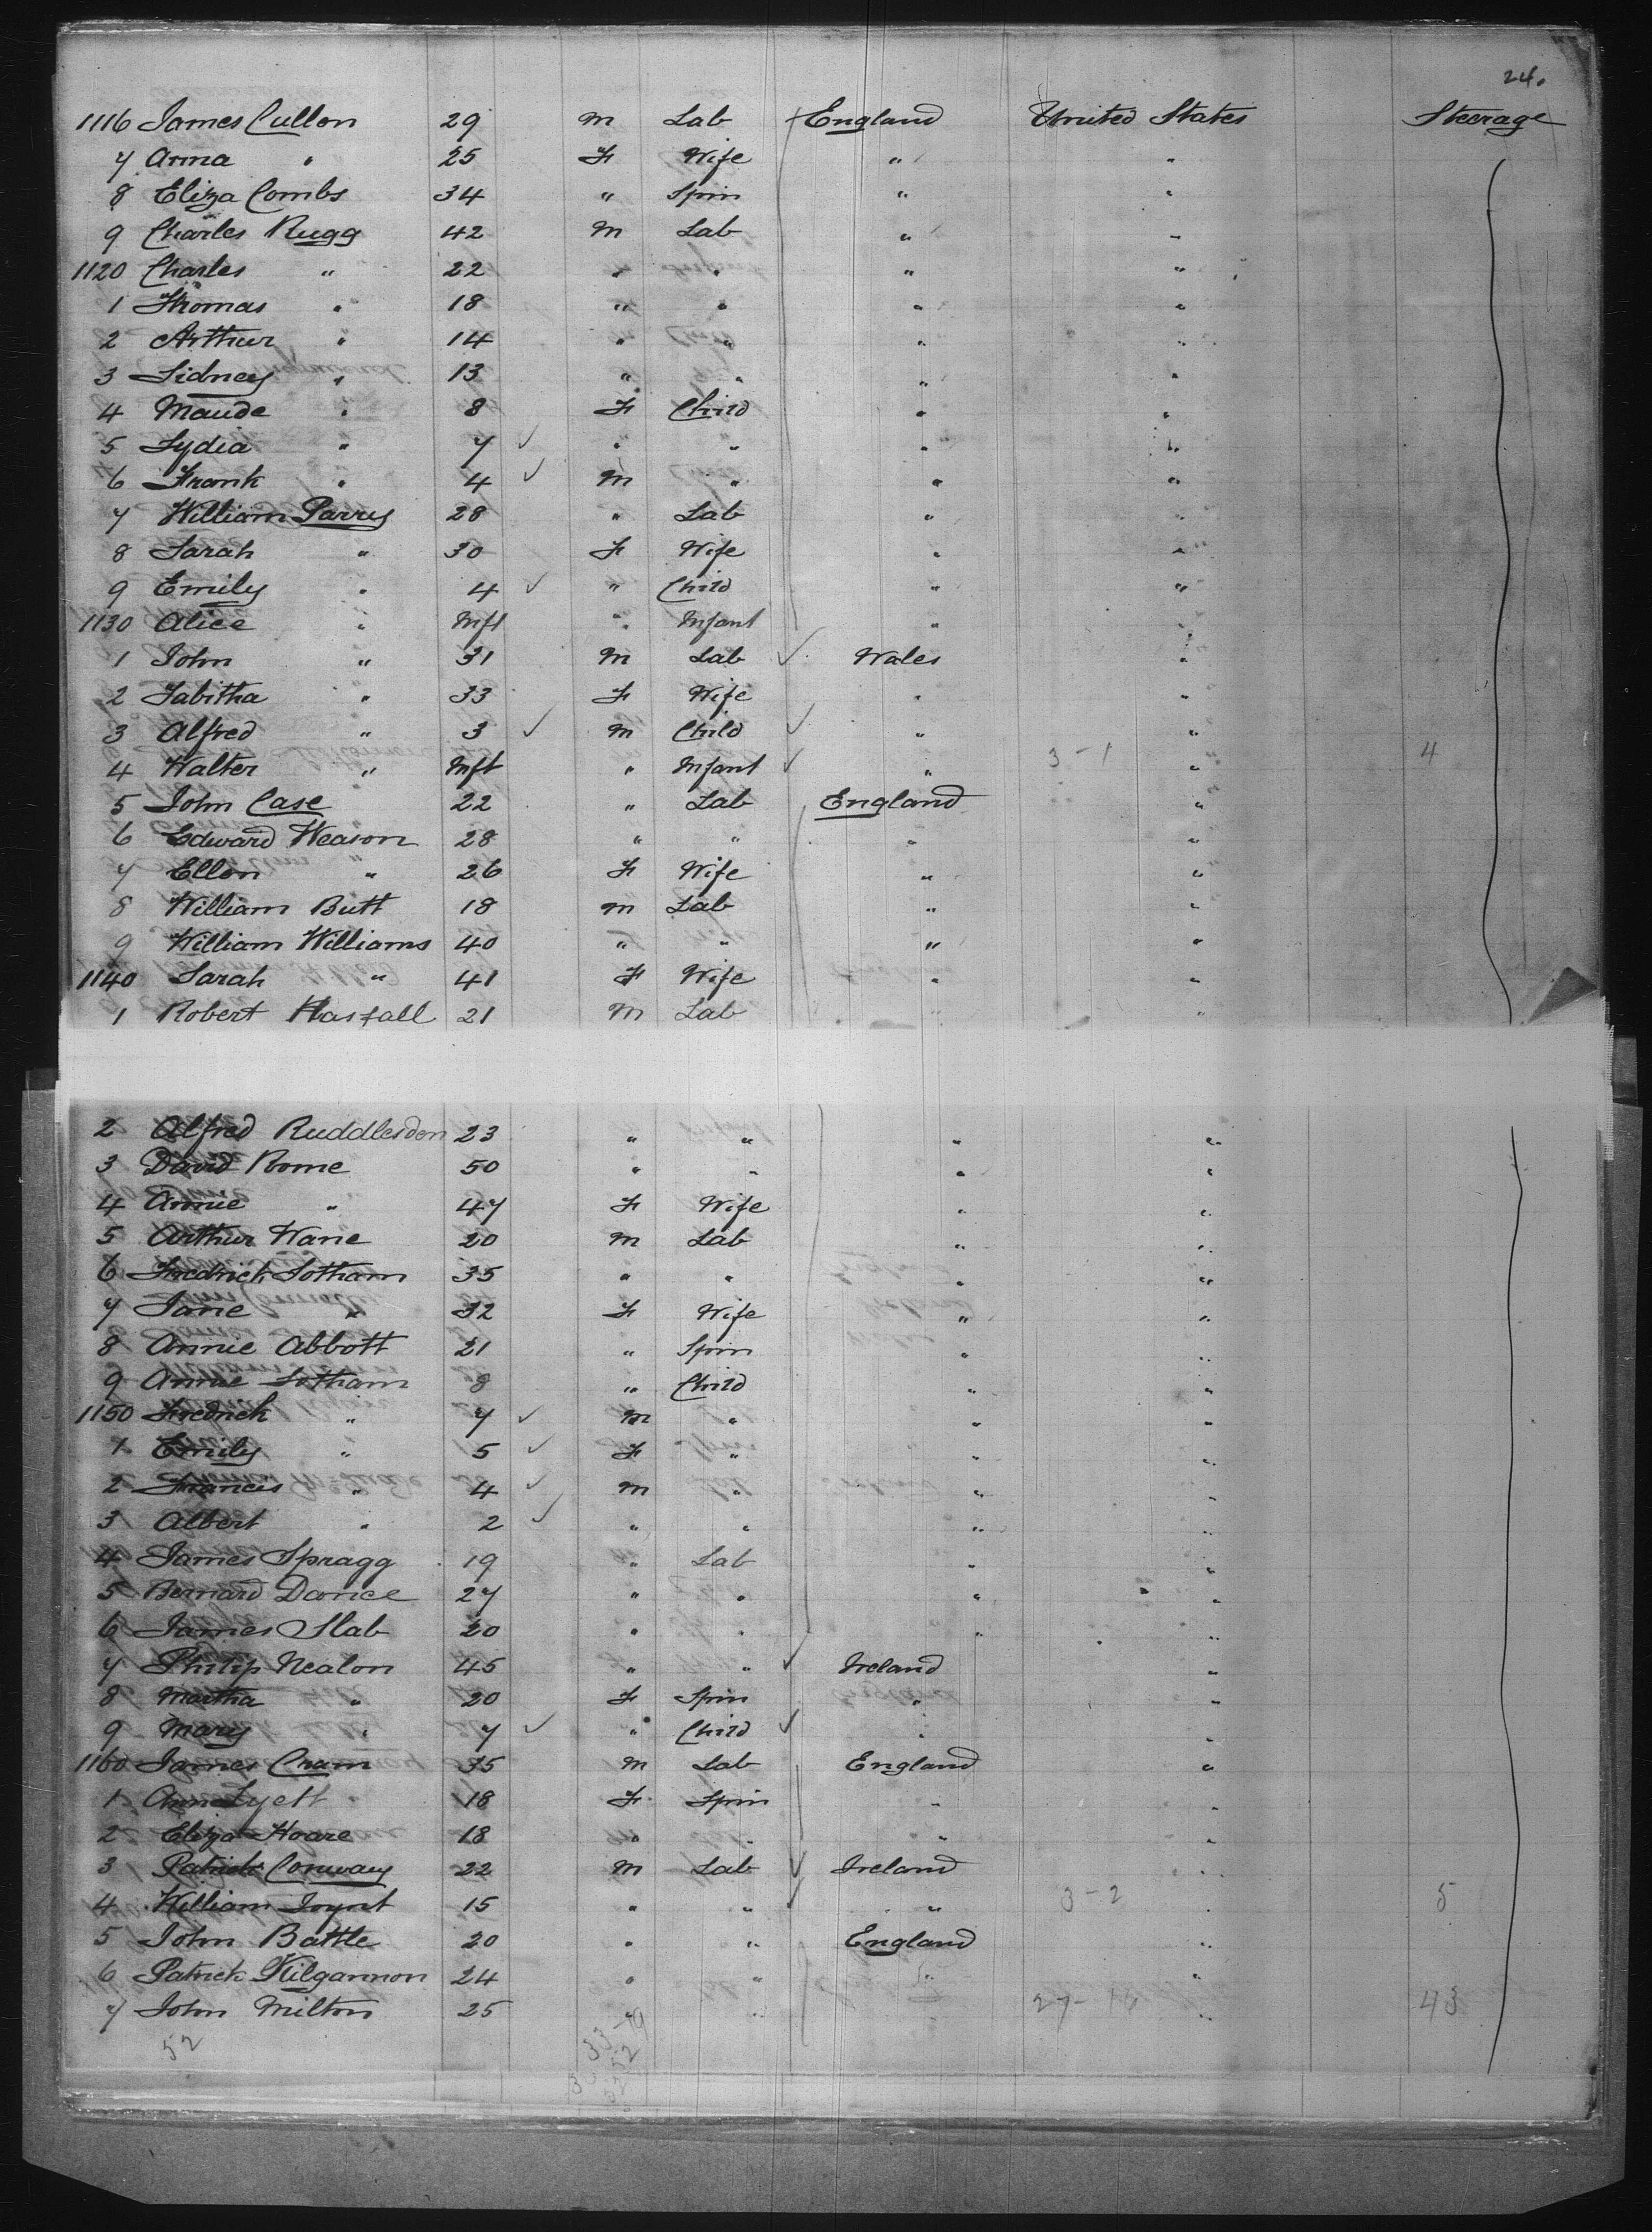 24.
1116 James Cullon 29 M Lab England United States Steerage
7 Anna " 25 F Wife " "
8 Eliza Combs 34 " Spin " "
9 Charles Rugg 42 M Lab " "
1120 Charles " 22 " " " "
1 Thomas " 18 " " " "
2 Arthur " 14 " " " "
3 Sidney " 13 " " " "
4 Maude " 8 F Child " "
5 Lydia " 7 ✓ " " " "
6 Frank " 4 ✓ M " " "
7 William Parry 28 " Lab " "
8 Sarah " 30 F Wife " "
9 Emily " 4 ✓ " Child " "
1130 Alice " Inft " Infant " "
1 John " 31 M Lab ✓ Wales "
2 Tabitha " 33 F Wife " "
3 Alfred " 3 ✓ M Child ✓ " "
4 Walter " Inft " Infant ✓ " 3-1 " 4
5 John Case 22 " Lab England "
6 Edward Weason 28 " " " "
7 Ellon " 26 F Wife " "
8 William Butt 18 M Lab " "
9 William Williams 40 " " " "
1140 Sarah " 41 F Wife " "
1 Robert Hastall 21 M Lab " "
2 Alfred Ruddlesdon 23 " " " "
3 David Rome 50 " " " "
4 Annie " 47 F Wife " "
5 Arthur Wane 20 M Lab " "
6 Fredrick Sotham 35 " " " "
7 Jane " 32 F Wife " "
8 Annie Abbott 21 " Spin " "
9 Annie Sotham 8 " Child " "
1150 Fredrick " 7 ✓ M " " "
1 Emily " 5 ✓ F " " "
2 Francis " 4 ✓ M " " "
3 Albert " 2 ✓ " " " "
4 James Spragg 19 " Lab " "
5 Bernard Dance 27 " " " "
6 James Slab 20 " " " "
7 Philip Nealon 45 " " ✓ Ireland "
8 Martha " 20 F Spin " "
9 Mary " 7 ✓ " Child ✓ " "
1160 James Cram 35 M Lab England "
1 Ann Lyett 18 F Spin " "
2 Eliza Hoare 18 " " " "
3 Patrick Conway 22 M Lab ✓ Ireland "
4 William Joynt 15 " " ✓ " 3-2 " 5
5 John Battle 20 " " England "
6 Patrick Kilgannon 24 " " " "
7 John Milton 25 " " " 27-16 " 43
52 33-19
52